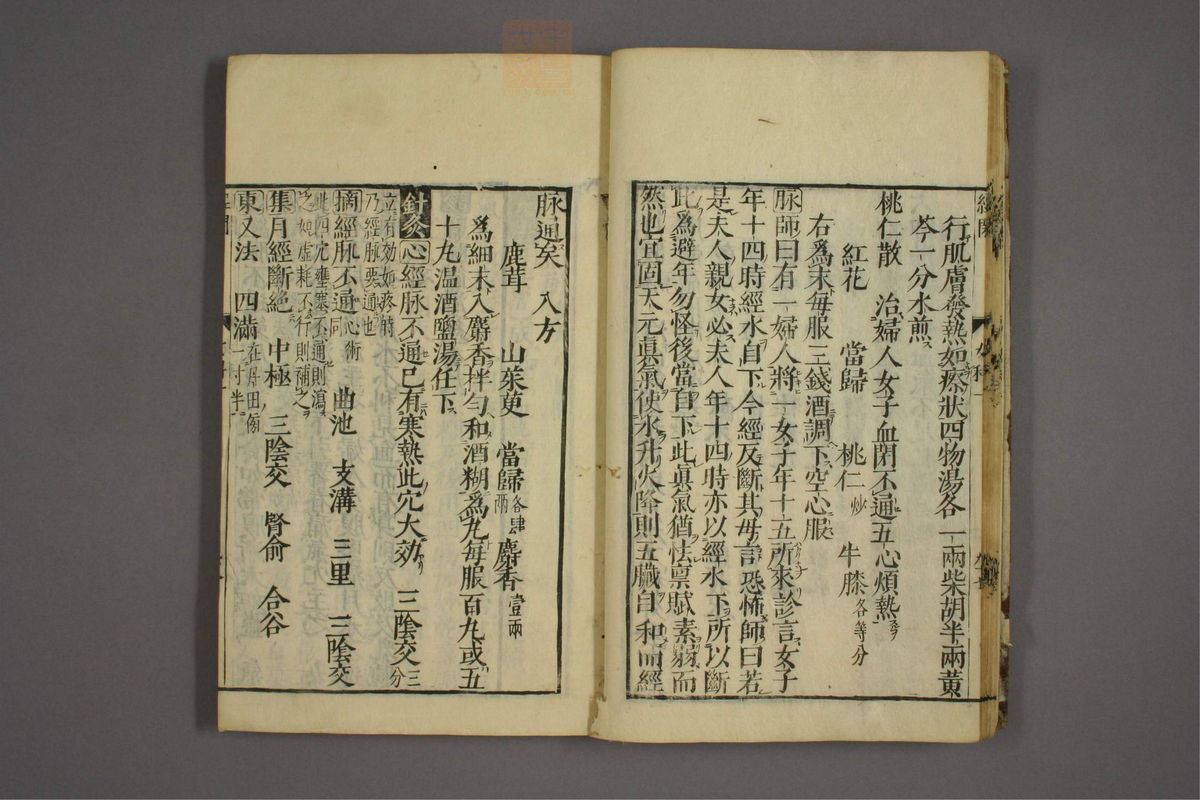 行肌膚發熱如瘵狀四物湯各一兩柴胡半兩黃
芩一分水煎
桃仁散 治婦人女子血閉不通五心煩熱
紅花 當歸 桃仁炒 牛膝各等分
右爲末每服三錢酒調下空心服
脉師曰有一婦人將一女子年十五所來診言女子
年十四時經水自下今經反斷其母言恐怖師曰若
是夫人親女必夫人年十四時亦以經水下所以斷
此爲避年勿怪後當自下此真氣猶怯稟賦素弱而
然也宜固天元眞氣使水升火降則五臟自和而經
脉通矣 入方
鹿茸 山茱萸 當歸各肆兩 麝香壹兩
爲細末入麝香拌勻和酒糊爲丸每服百丸或五
十丸温酒鹽湯任下
針灸心經脉不通已有寒熱此穴大効 三陰交三分
立有効如疼的
乃經脉要通也
摘經脉不通心術同 曲池 支溝 三里 三陰交
此四穴壅塞不通則瀉
之如虛耗不行則補之
集月經斷絕 中極 三陰交 腎俞 合谷
東又法 四滿在丹田傍一寸半